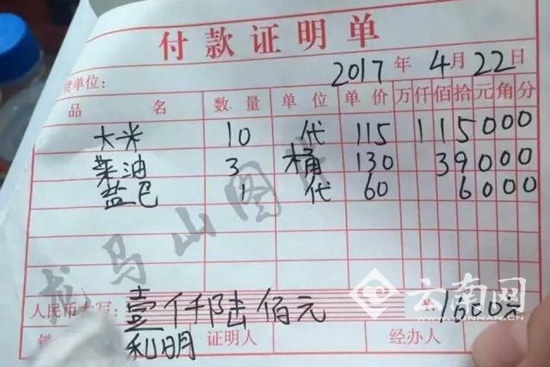 付款证明单
2017年4月22日
货单位:
品名 数量 单位 单价 万仟佰拾元角分
大米 10 代 115 115000
菜油 3 桶 130 39000
盐巴 1 代 60 6000
龙马山图
人民币大写: 壹仟陆佰元 1600元
云南网
YUNNAN.CN
利明 证明人 经办人